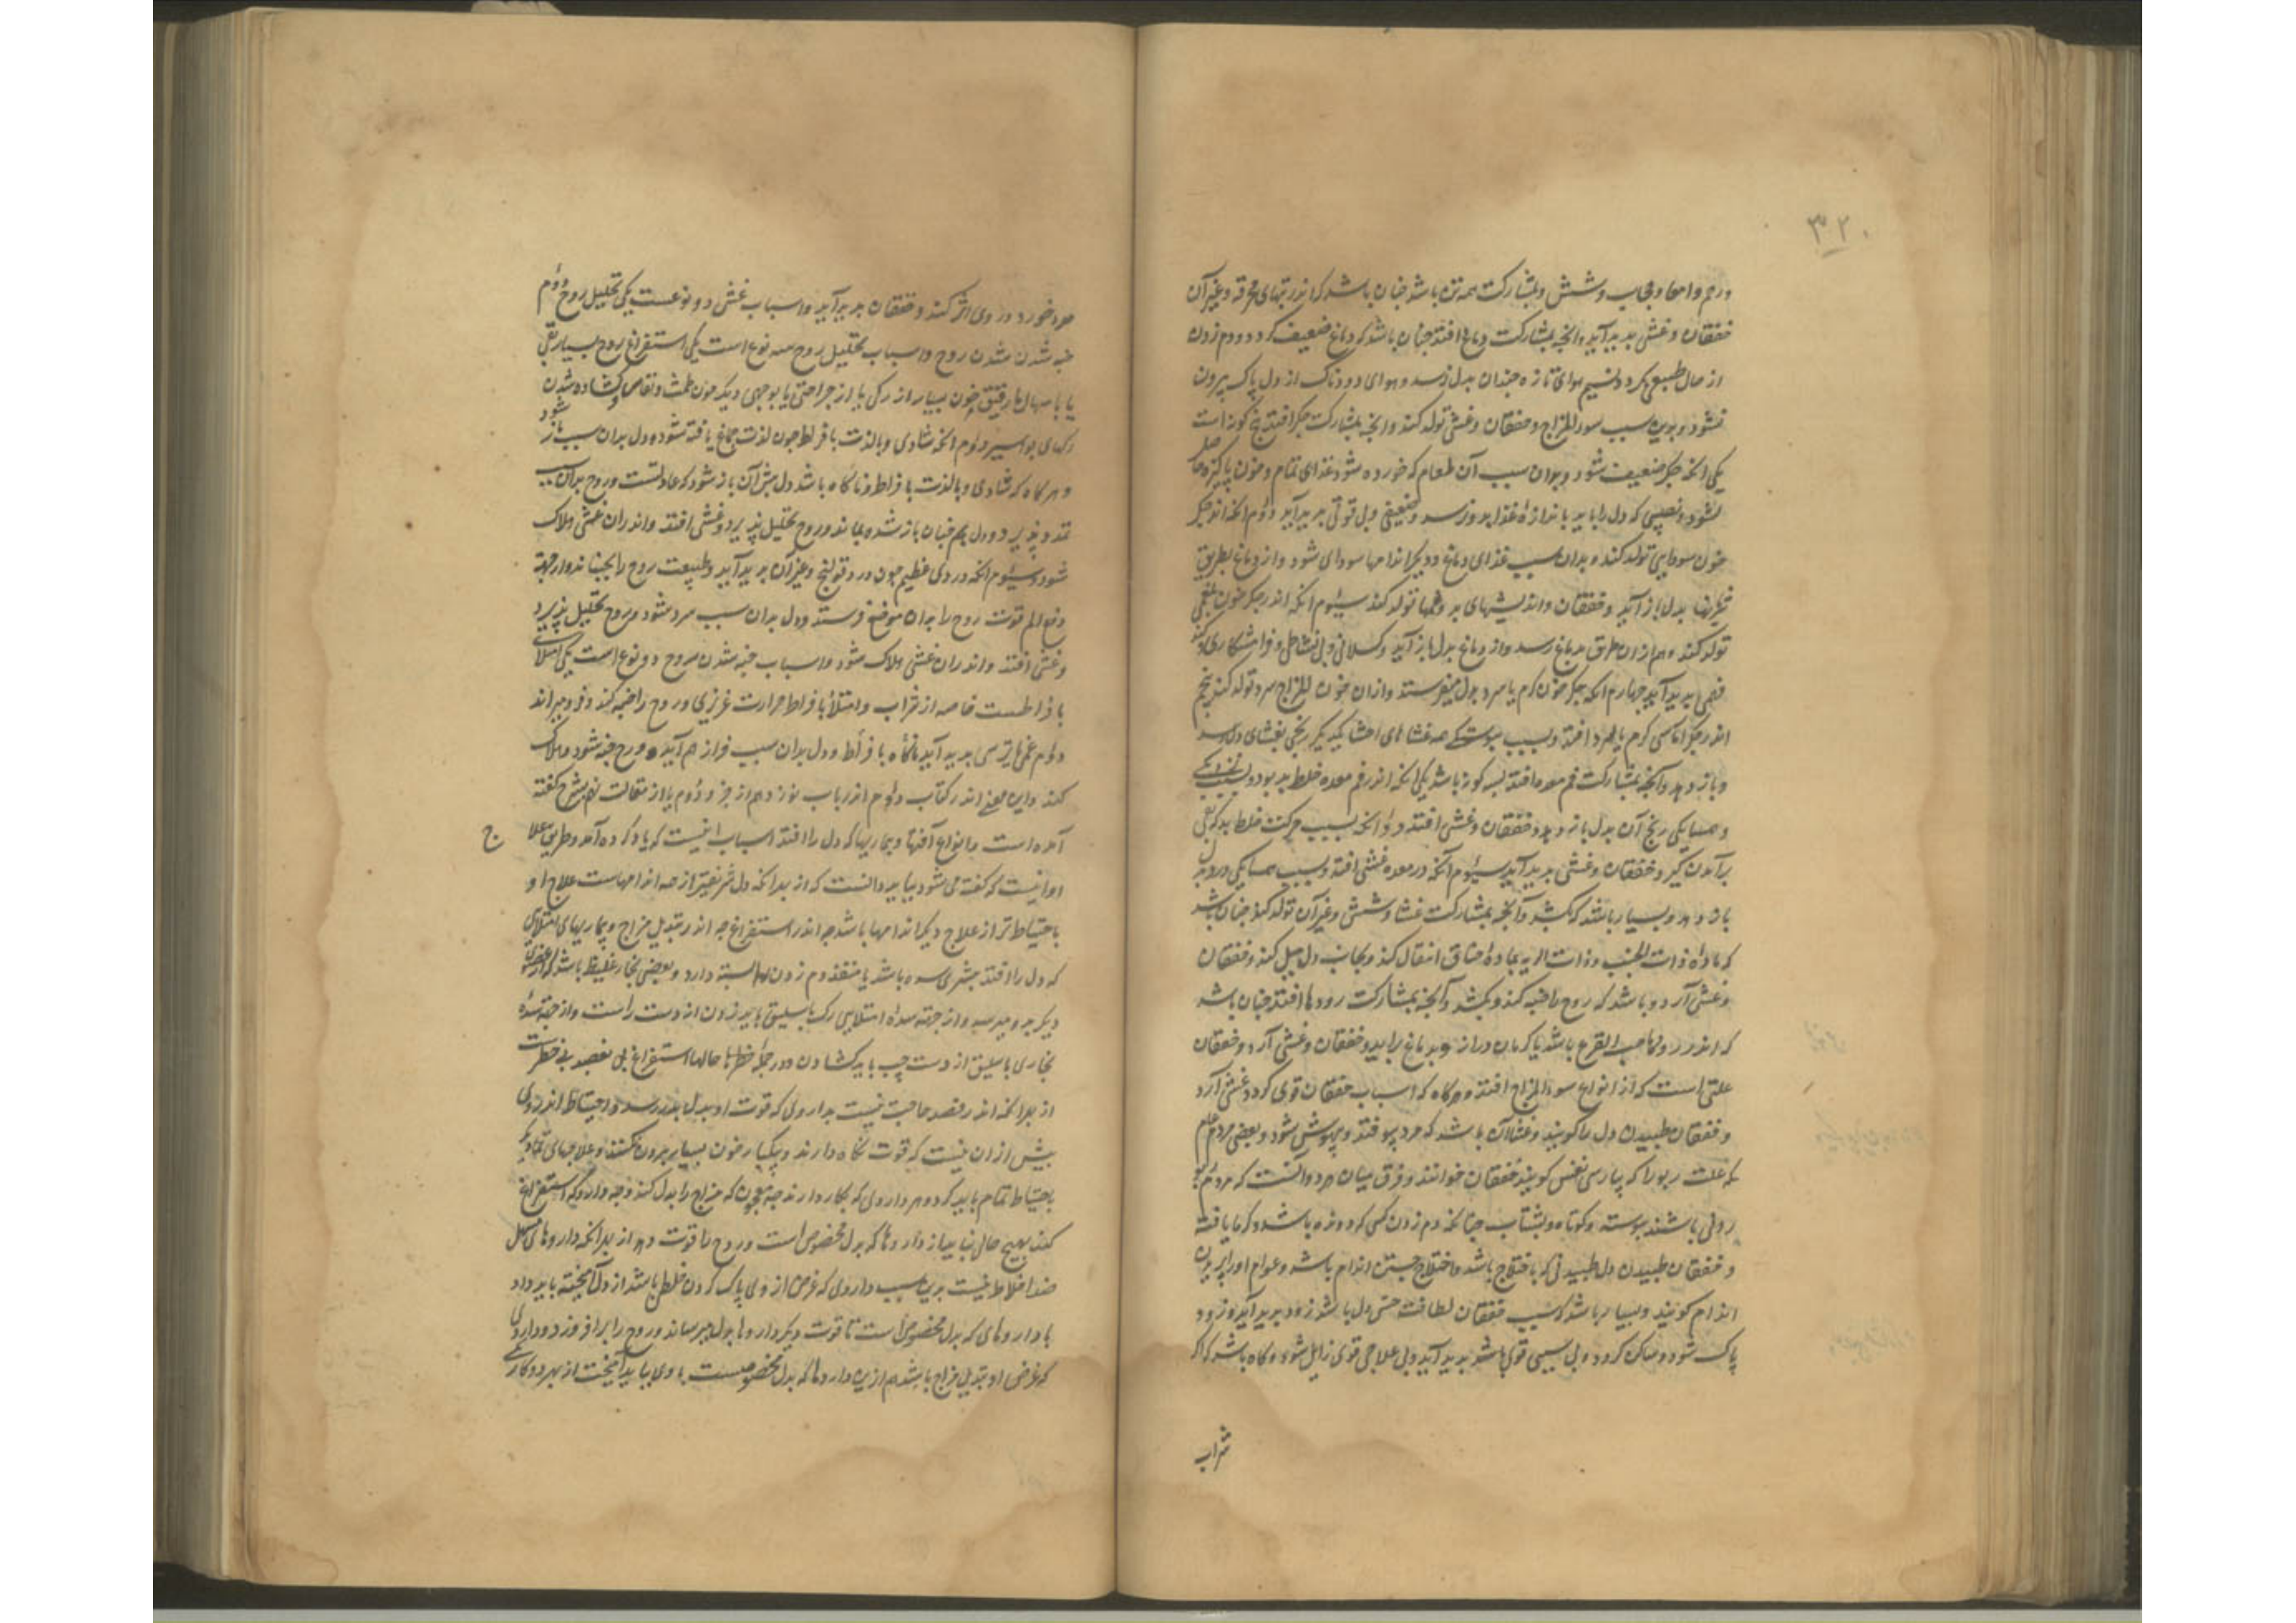 ۳۲۰
ورحم وامعا وحجاب وشش وبمشارکت همه تن باشد چنان باشد که اندر تبهای محرقه وغیر آن
خفقان وغشی پدید آید وانچه بمشارکت دماغ افتد چنان باشد که دماغ ضعیف کردد ودم زدن
از حال طبیعی بکردد ونسیم هوای تازه چندان بدل نرسد وهوای دودناک از دل پاک بیرون
نشود وبدین سبب سوء المزاج وخفقان وغشی تولد کند وانچه بمشارکت جکر افتد پنج کونه است
یکی انکه جکر ضعیف شود وبدان سبب آن طعام که خورده شود غذای تمام وخون پاکیزه حاصل
نشود ونصیبی که دل را باید باندازهٔ غذا بدو نرسد وضعیفی وبی قوتی پدید آید دوم انکه اندر جکر
خون سودایی تولد کند وبدان سبب غذای دماغ ودیکر اندامها سودای شود واز دماغ بطریق
شریانها بدل باز آید وخفقان واندیشهای بد وغمها تولد کند سیوم انکه اندر جکر خون بلغمی
تولد کند وهم از ان طرق بدماغ رسد واز دماغ بدل باز آید وکسلانی وبی نشاطی وفرامشکاری وکند
فهمی پدید آید چهارم انکه جکر خون کرم یا سرد بدل میفرستد وازان خون سوء المزاج سرد تولد کند پنجم
اندر جکر اماسی کرم یا سرد افتد وبسبب پیوستکی همه غشاهای احشا بیکدیکر رنجی بغشای دل رسد
وباز دهد وانچه بمشارکت فم معده افتد بسه کونه باشد یکی انکه اندر فم معده خلط بد بود وبسبب نزدیکی
وهمسایکی رنج آن بدل باز دهد وخفقان وغشی افتد دوم انکه بسبب حرکت خلط بد که بقی
برآمدن کیرد خفقان وغشی پدید آید سیوم انکه در معده غشی افتد وبسبب همسایکی درد بدل
باز دهد وبسیار باشد که بکشد وآنچه بمشارکت غشا وشش وغیر آن تولد کند چنان باشد
که مادهٔ ذات الجنب وذات الریه بمادهٔ خناق انتقال کند وبجانب دل میل کند وخفقان
وغشی آرد وباشد که روح را خبه کند وبکشد وآنچه بمشارکت رودها افتد چنان باشد
که اندر رودها حب القرع باشد یا کرمان دراز وبدماغ براید وخفقان وغشی آرد وخفقان
علتی است که از انواع سوء المزاج افتد وهرکاه که اسباب خفقان قوی کردد غشی آرد
وخفقان طپیدن دل را کویند وغشی آن باشد که مرد بیوفتد وبیهوش شود وبعضی مردم عام
علت ربو را که پارسی نفس کویند خفقان خوانند وفرق میان هر دو آنست که مردم
ربوی باشند پیوسته وکوتاه وبشتاب چنانکه دم زدن کسی که دونده باشد وکرما یافته
وخفقان طپیدن دل طپیدنی که باختلاج باشد واختلاج جستن اندام باشد وعوام او را پریدن
اندام کویند وبسیار باشد که سبب خفقان لطافت حس دل باشد زود پدید آید وزود
پاک شود وساکن کردد وبی سببی قوی باشد پدید آید وبی علاجی قوی زایل شود وکاه باشد که اکر
شراب
خورد دروی اثر کند وخفقان پدید آید واسباب غشی دو نوعست یکی تحلیل روح دوم
خبه شدن روح واسباب تحلیل روح سه نوع است یکی استفراغ روح بسیار بقی
یا باسهالها رقیق وخون بسیار از رکی یا از جراحتی یا بوجهی دیکر چون طمث ونفاس وکشاده شدن
رکهای بواسیر دوم انکه شادی وبا لذت بافراط چون لذت جماع یافته شود ودل بدان سبب باز شود
وهرکاه که شادی وبا لذت بافراط وناکاه باشد دل بیش آن باز شود که عادتست وروح بدان سبب
تمدد پذیرد ودل هم چنان باز شده بماند وروح تحلیل پذیرد وغشی افتد واندران غشی هلاک
شود وسیوم انکه دردی عظیم چون درد قولنج وغیر آن پدید آید وطبیعت روح را بجنباند واز جهة
دفع الم قوت روح را بدان موضع فرستد ودل بدان سبب سرد شود وروح تحلیل پذیرد
وغشی افتد واندران غشی هلاک شود واسباب خبه شدن روح دو نوع است یکی امتلای
بافراطست خاصه از شراب وامتلا بافراط حرارت غریزی وروح را خبه کند وفرو میراند
دوم غمی یا ترسی پدید آید ناکاه بافراط ودل بدان سبب فراز هم آید وروح خبه شود وهلاک
کند واین معنی اندر کتاب دوم اندر باب نوزدهم از جزو دوم یا از مقالت نهم بشرح کفته
آمده است وانواع آفتها وبیماریها که دل را افتد اسباب اینست که یاد کرده آمد وطریق علاج
او اینست که کفته می شود بباید دانست که از بهر انکه دل شریفتر از همه اندامهاست علاج او
باحتیاط تر از علاج دیکر اندامها باشد چه اندر استفراغ چه اندر تبدیل مزاج وبیماریهای امتلایی
که دل را افتد بیشتری سده باشد یا منفذ دم زدن بسته دارد وبعضی بخار غلیظ باشد که از عضوی
دیکر بدو میرسد واز جهة سدهٔ امتلایی رک باسلیق باید زدن از دست راست واز جهة سدهٔ
بخاری باسلیق از دست چپ باید کشادن ودر جمله خطرها حالها استفراغ بی بفصد بی خطرست
از بهر انکه اندر فصد حاجت نیست بداروی که قوت او بدل بدرسد واحتیاط اندروی
بیش ازان نیست که قوت نکاه دارند وبیکبار خون بسیار بیرون نکنند وعلاجهای دیکر
باحتیاط تمام باید کرد وهر داروی که بکار دارند چه معجون که مزاج را بدل کند وچه داروی که استفراغ
کند بهیچ حال نباید از داروها که بدل مخصوص است وروح را قوت دهد از بهر انکه داروهای مسهل
ضد اخلاط نیست بدین سبب داروی که غرض از وی پاک کردن خلطی باشد از دل آمیخته باید داد
با داروهای که بدل مخصوص است تا قوت دیکر داروها بدل میرساند وروح را برافروزد وداروی
که غرض او تبدیل مزاج باشد هم ازین داروها که بدل مخصوصست با وی بباید آمیخت از بهر دو کار یکی